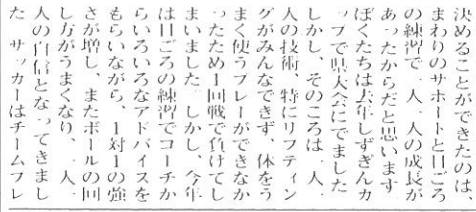 決めることができたのは
まわりのサポートと日ごろ
の練習で一人一人の成長が
あったからだと思います
ぼくたちは去年しずぎんカ
ップで県大会にでました
しかし、そのころは一人一
人の技術、特にリフティン
グがみんなできず、体をう
まく使うプレーができなか
ったため1回戦で負けてし
まいました しかし、今年
は日ごろの練習でコーチか
らいろいろなアドバイスを
もらいながら、1対1の強
さが増し、またボールの回
し方がうまくなり、一人一
人の自信となってきまし
た サッカーはチームプレ